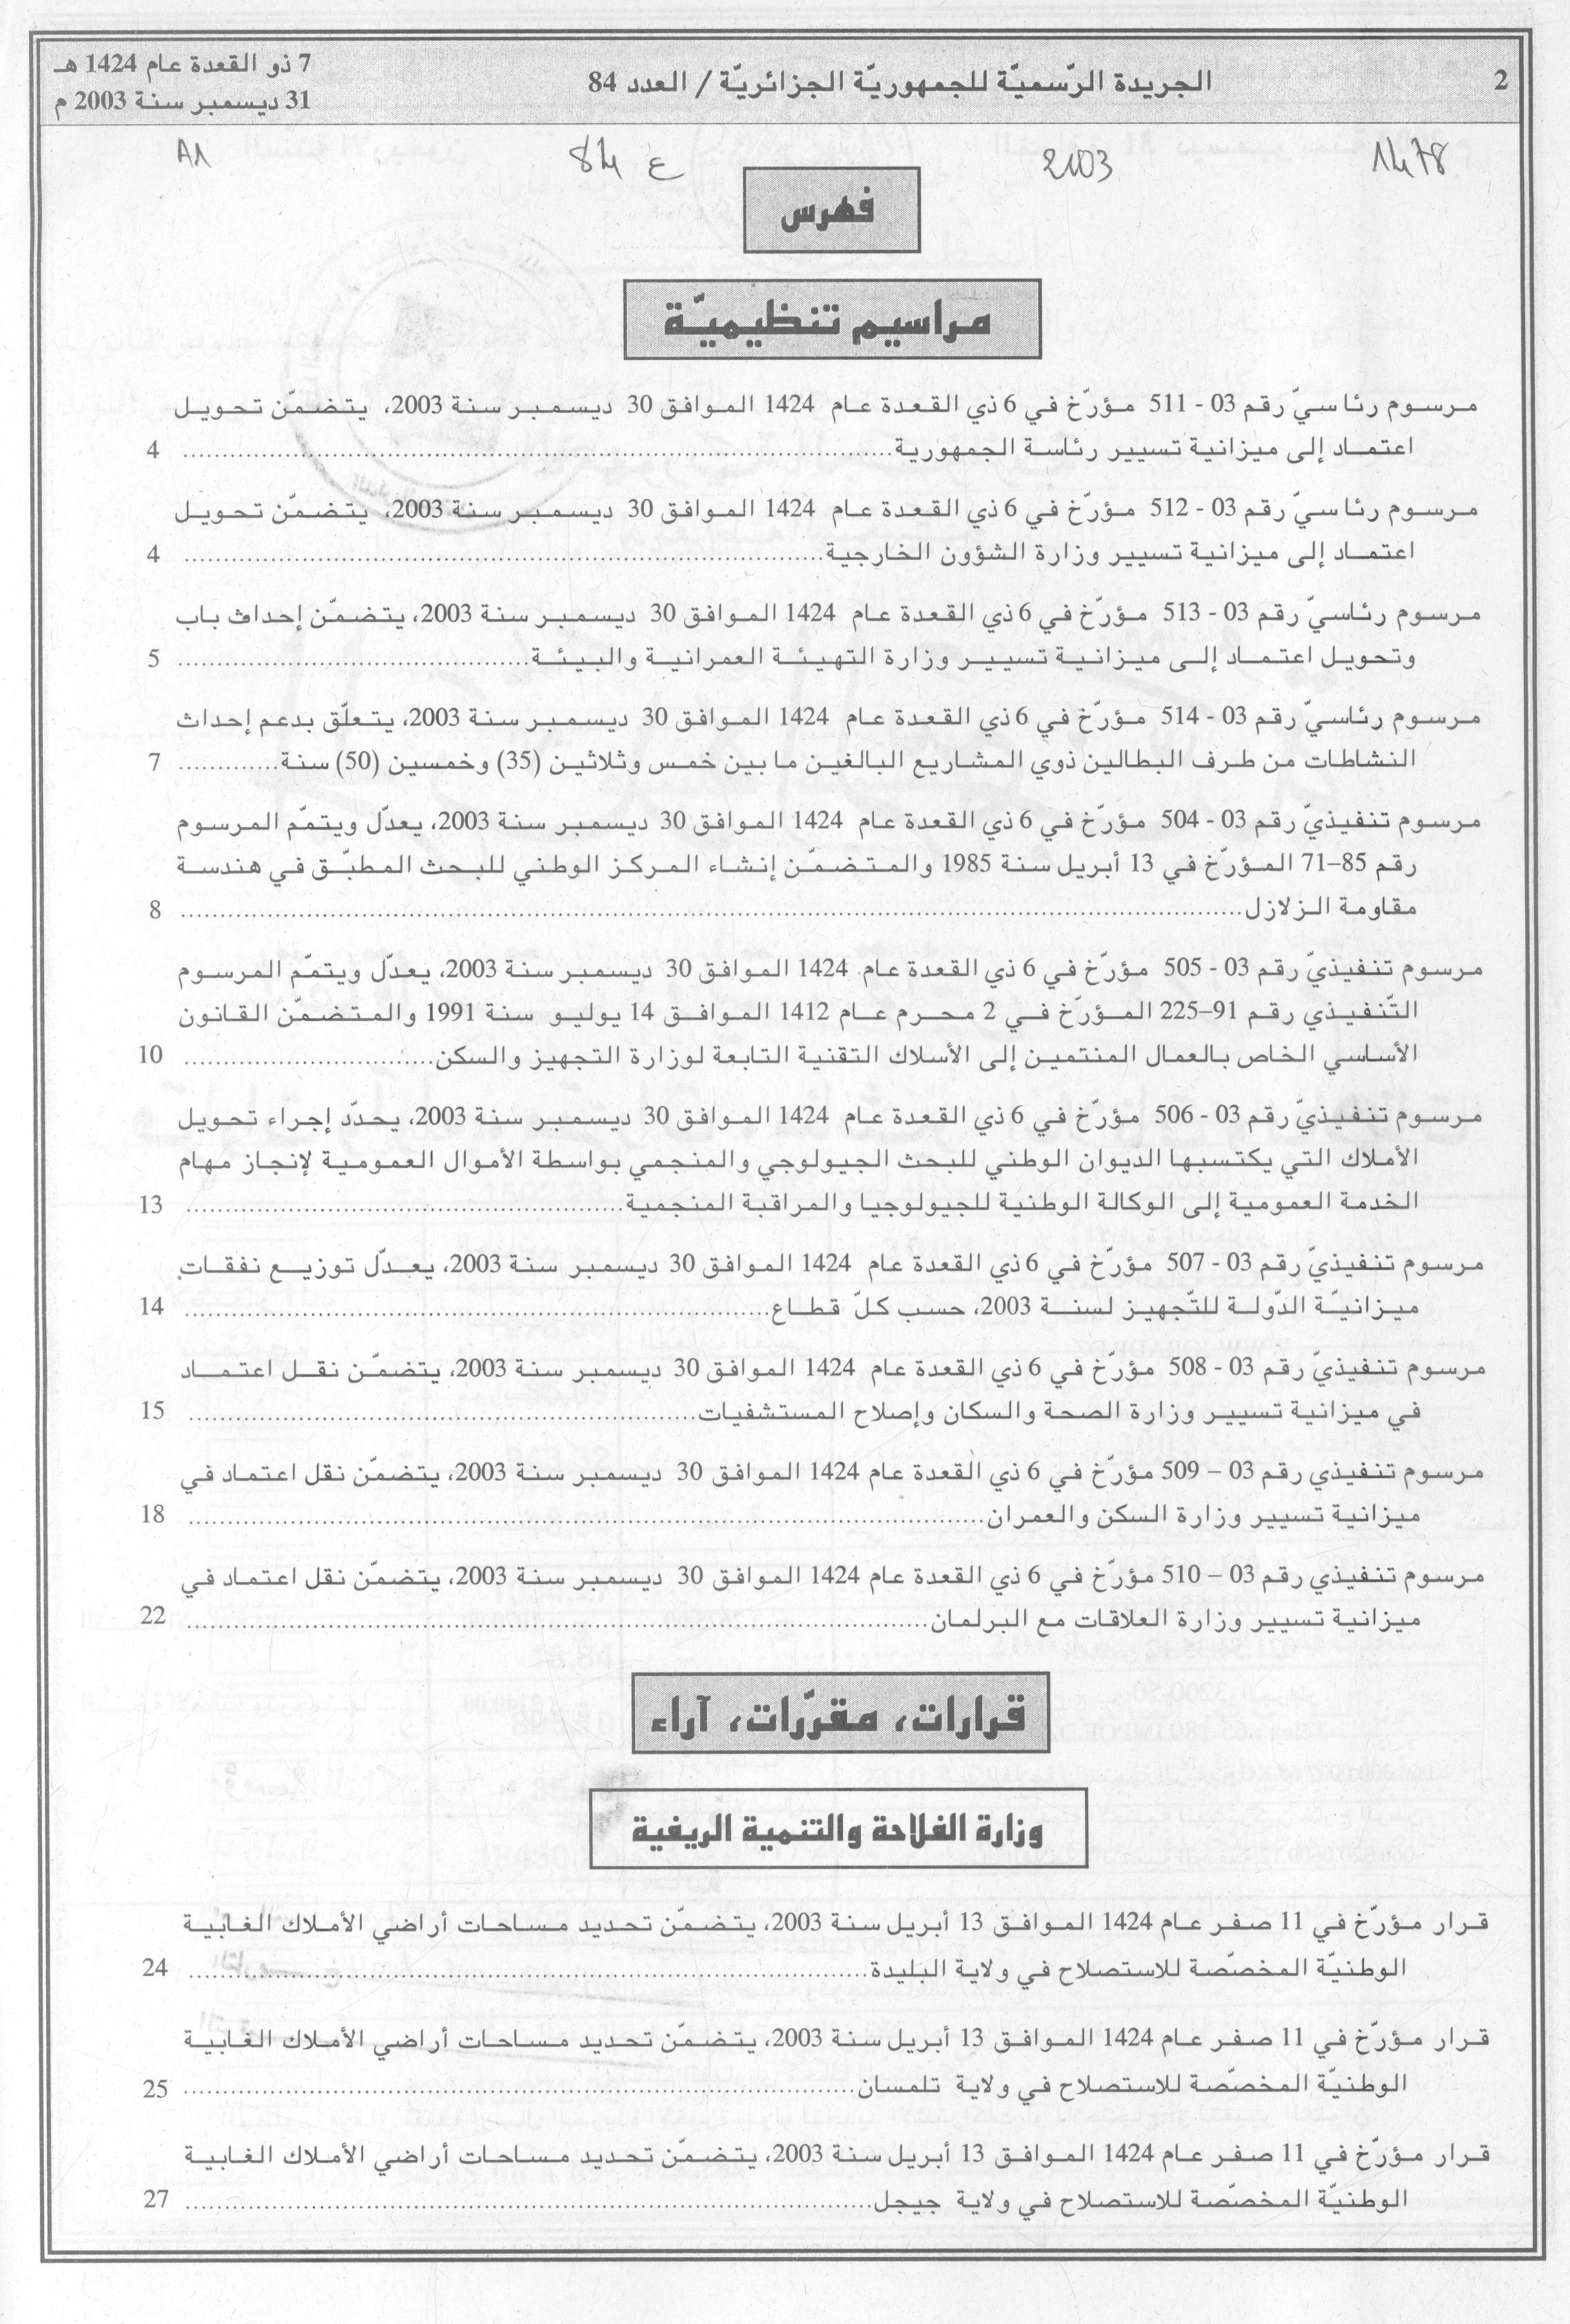 2
الجريدة الرّسميّة للجمهوريّة الجزائريّة / العدد 84
7 ذو القعدة عام 1424 هـ
31 ديسمبر سنة 2003 م
1478
2003
84 ع
A1
فهرس
مراسيم تنظيميّة
مرسوم رئاسيّ رقم 03 - 511 مؤرّخ في 6 ذي القعدة عام 1424 الموافق 30 ديسمبر سنة 2003، يتضمّن تحويل
اعتماد إلى ميزانية تسيير رئاسة الجمهورية........................ 4
مرسوم رئاسيّ رقم 03 - 512 مؤرّخ في 6 ذي القعدة عام 1424 الموافق 30 ديسمبر سنة 2003، يتضمّن تحويل
اعتماد إلى ميزانية تسيير وزارة الشؤون الخارجية........................ 4
مرسوم رئاسيّ رقم 03 - 513 مؤرّخ في 6 ذي القعدة عام 1424 الموافق 30 ديسمبر سنة 2003، يتضمّن إحداث باب
وتحويل اعتماد إلى ميزانية تسيير وزارة التهيئة العمرانية والبيئة........................ 5
مرسوم رئاسيّ رقم 03 - 514 مؤرّخ في 6 ذي القعدة عام 1424 الموافق 30 ديسمبر سنة 2003، يتعلّق بدعم إحداث
النشاطات من طرف البطالين ذوي المشاريع البالغين ما بين خمس وثلاثين (35) وخمسين (50) سنة............ 7
مرسوم تنفيذيّ رقم 03 - 504 مؤرّخ في 6 ذي القعدة عام 1424 الموافق 30 ديسمبر سنة 2003، يعدّل ويتمّم المرسوم
رقم 85–71 المؤرّخ في 13 أبريل سنة 1985 والمتضمّن إنشاء المركز الوطني للبحث المطبّق في هندسة
مقاومة الزلازل........................ 8
مرسوم تنفيذيّ رقم 03 - 505 مؤرّخ في 6 ذي القعدة عام 1424 الموافق 30 ديسمبر سنة 2003، يعدّل ويتمّم المرسوم
التّنفيذي رقم 91–225 المؤرّخ في 2 محرم عام 1412 الموافق 14 يوليو سنة 1991 والمتضمّن القانون
الأساسي الخاص بالعمال المنتمين إلى الأسلاك التقنية التابعة لوزارة التجهيز والسكن........................ 10
مرسوم تنفيذيّ رقم 03 - 506 مؤرّخ في 6 ذي القعدة عام 1424 الموافق 30 ديسمبر سنة 2003، يحدّد إجراء تحويل
الأملاك التي يكتسبها الديوان الوطني للبحث الجيولوجي والمنجمي بواسطة الأموال العمومية لإنجاز مهام
الخدمة العمومية إلى الوكالة الوطنية للجيولوجيا والمراقبة المنجمية........................ 13
مرسوم تنفيذيّ رقم 03 - 507 مؤرّخ في 6 ذي القعدة عام 1424 الموافق 30 ديسمبر سنة 2003، يعدّل توزيع نفقات
ميزانيّة الدّولة للتّجهيز لسنة 2003، حسب كلّ قطاع........................ 14
مرسوم تنفيذيّ رقم 03 - 508 مؤرّخ في 6 ذي القعدة عام 1424 الموافق 30 ديسمبر سنة 2003، يتضمّن نقل اعتماد
في ميزانية تسيير وزارة الصحة والسكان وإصلاح المستشفيات........................ 15
مرسوم تنفيذي رقم 03 – 509 مؤرّخ في 6 ذي القعدة عام 1424 الموافق 30 ديسمبر سنة 2003، يتضمّن نقل اعتماد في
ميزانية تسيير وزارة السكن والعمران........................ 18
مرسوم تنفيذي رقم 03 – 510 مؤرّخ في 6 ذي القعدة عام 1424 الموافق 30 ديسمبر سنة 2003، يتضمّن نقل اعتماد في
ميزانية تسيير وزارة العلاقات مع البرلمان........................ 22
قرارات، مقرّرات، آراء
وزارة الفلاحة والتنمية الريفية
قرار مؤرّخ في 11 صفر عام 1424 الموافق 13 أبريل سنة 2003، يتضمّن تحديد مساحات أراضي الأملاك الغابية
الوطنيّة المخصّصة للاستصلاح في ولاية البليدة........................ 24
قرار مؤرّخ في 11 صفر عام 1424 الموافق 13 أبريل سنة 2003، يتضمّن تحديد مساحات أراضي الأملاك الغابية
الوطنيّة المخصّصة للاستصلاح في ولاية تلمسان........................ 25
قرار مؤرّخ في 11 صفر عام 1424 الموافق 13 أبريل سنة 2003، يتضمّن تحديد مساحات أراضي الأملاك الغابية
الوطنيّة المخصّصة للاستصلاح في ولاية جيجل........................ 27